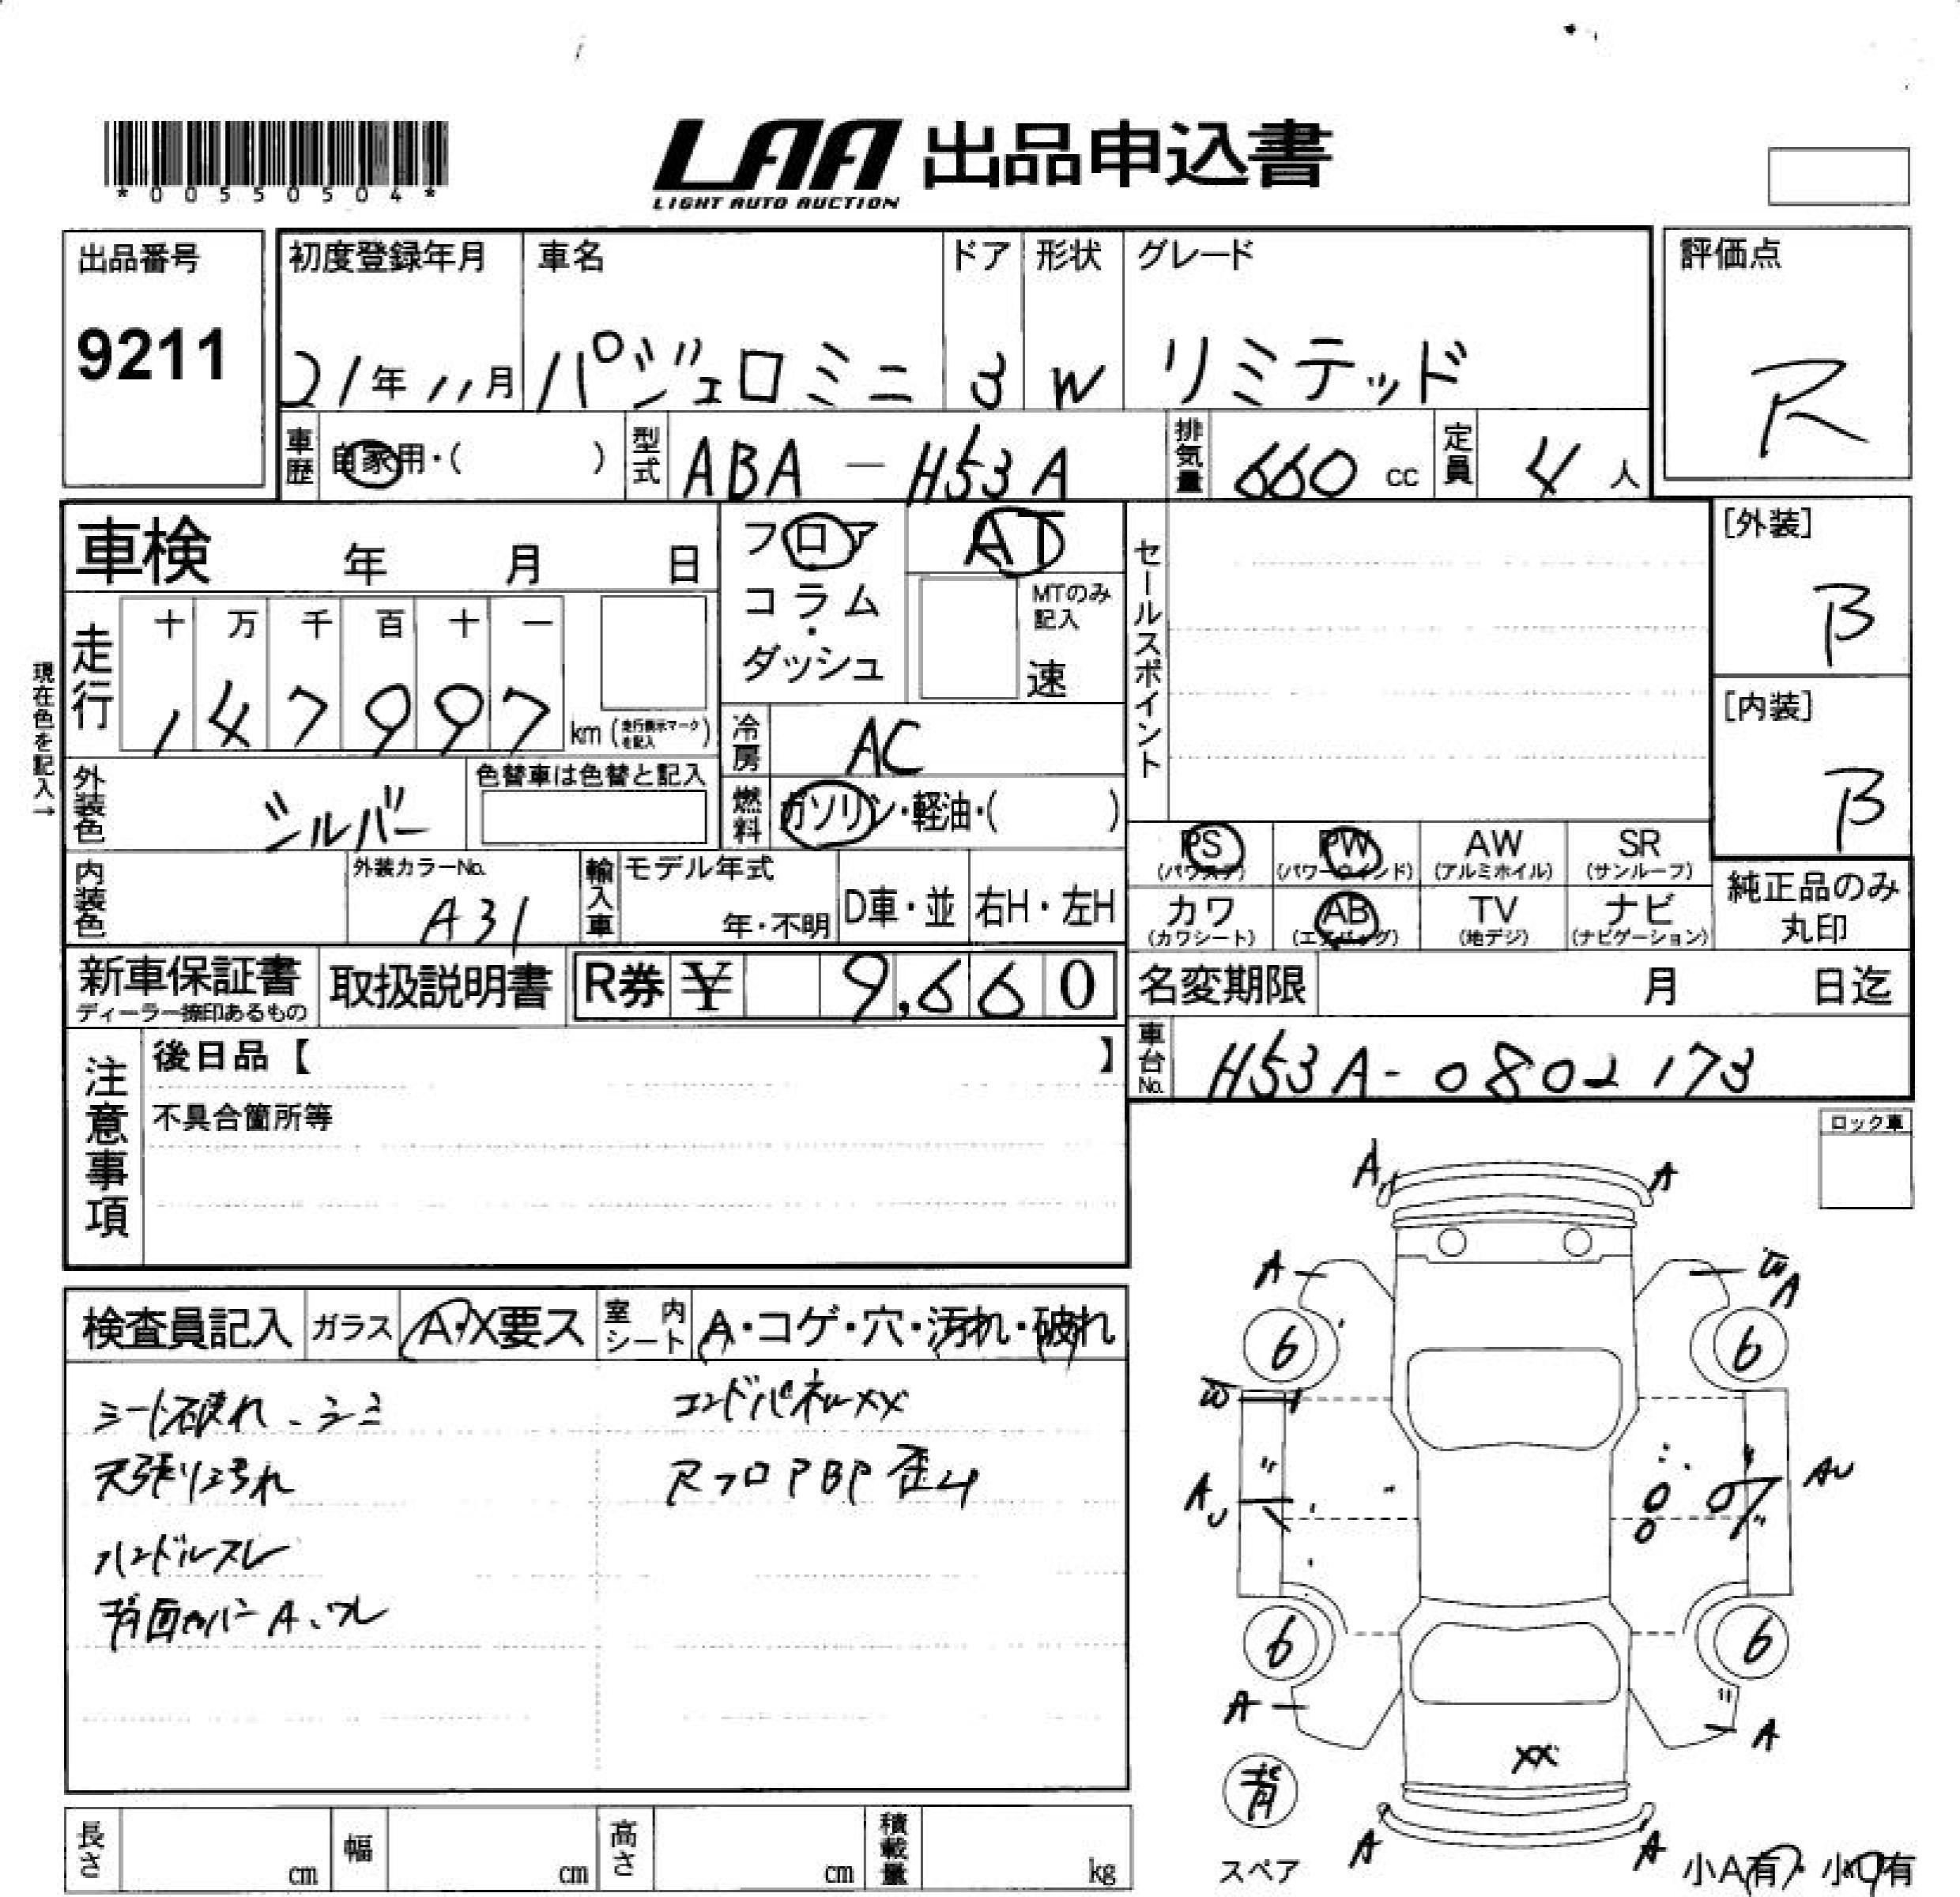 *00550504*
LAA 出品申込書
LIGHT AUTO AUCTION
出品番号 初度登録年月 車名 ドア 形状 グレード 評価点
9211 21年11月 パジェロミニ 3 W リミテッド R
車歴 自家用・( ) 型式 ABA-H53A 排気量 660 cc 定員 4 人
車検 年 月 日 フロア AT セールスポイント [外装]
コラム・ MTのみ記入 B
ダッシュ 速
現在色を記入→
走行 十 万 千 百 十 一
1 4 7 9 9 7 km (走行表示マークを記入) 冷房 AC [内装]
外装色 シルバー 色替車は色替と記入 燃料 ガソリン・軽油・( ) B
PS (パワステ) PW (パワーウインド) AW (アルミホイル) SR (サンルーフ)
内装色 外装カラーNo. A31 輸入車 モデル年式 年・不明 D車・並 右H・左H カワ (カワシート) AB (エアバッグ) TV (地デジ) ナビ (ナビゲーション) 純正品のみ丸印
新車保証書 ディーラー捺印あるもの 取扱説明書 R券 ¥ 9,660 名変期限 月 日迄
注意事項 後日品【 】 車台No. H53A-0802173
不具合箇所等 ロック車
検査員記入 ガラス A・X要ス 室内シート A・コゲ・穴・汚れ・破れ
シート破れ、シミ エンドパネルXX
天張り汚れ RフロアBP歪み
ハンドルスレ
背面カバーA、ワレ
A A
A W A
6 6
W
A U AU
6 6
A A
XX
背
スペア A A 小A有・小U有
長さ cm 幅 cm 高さ cm 積載量 kg